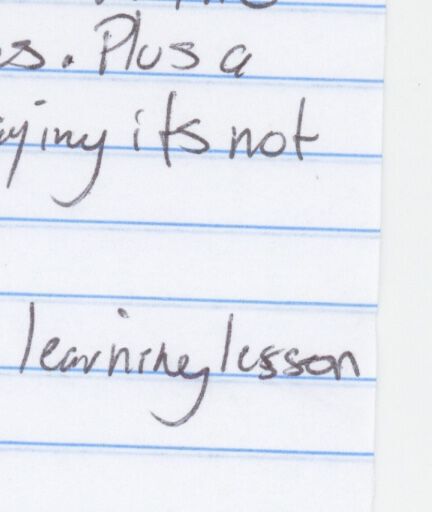 s. Plus a
ying its not
learning lesson